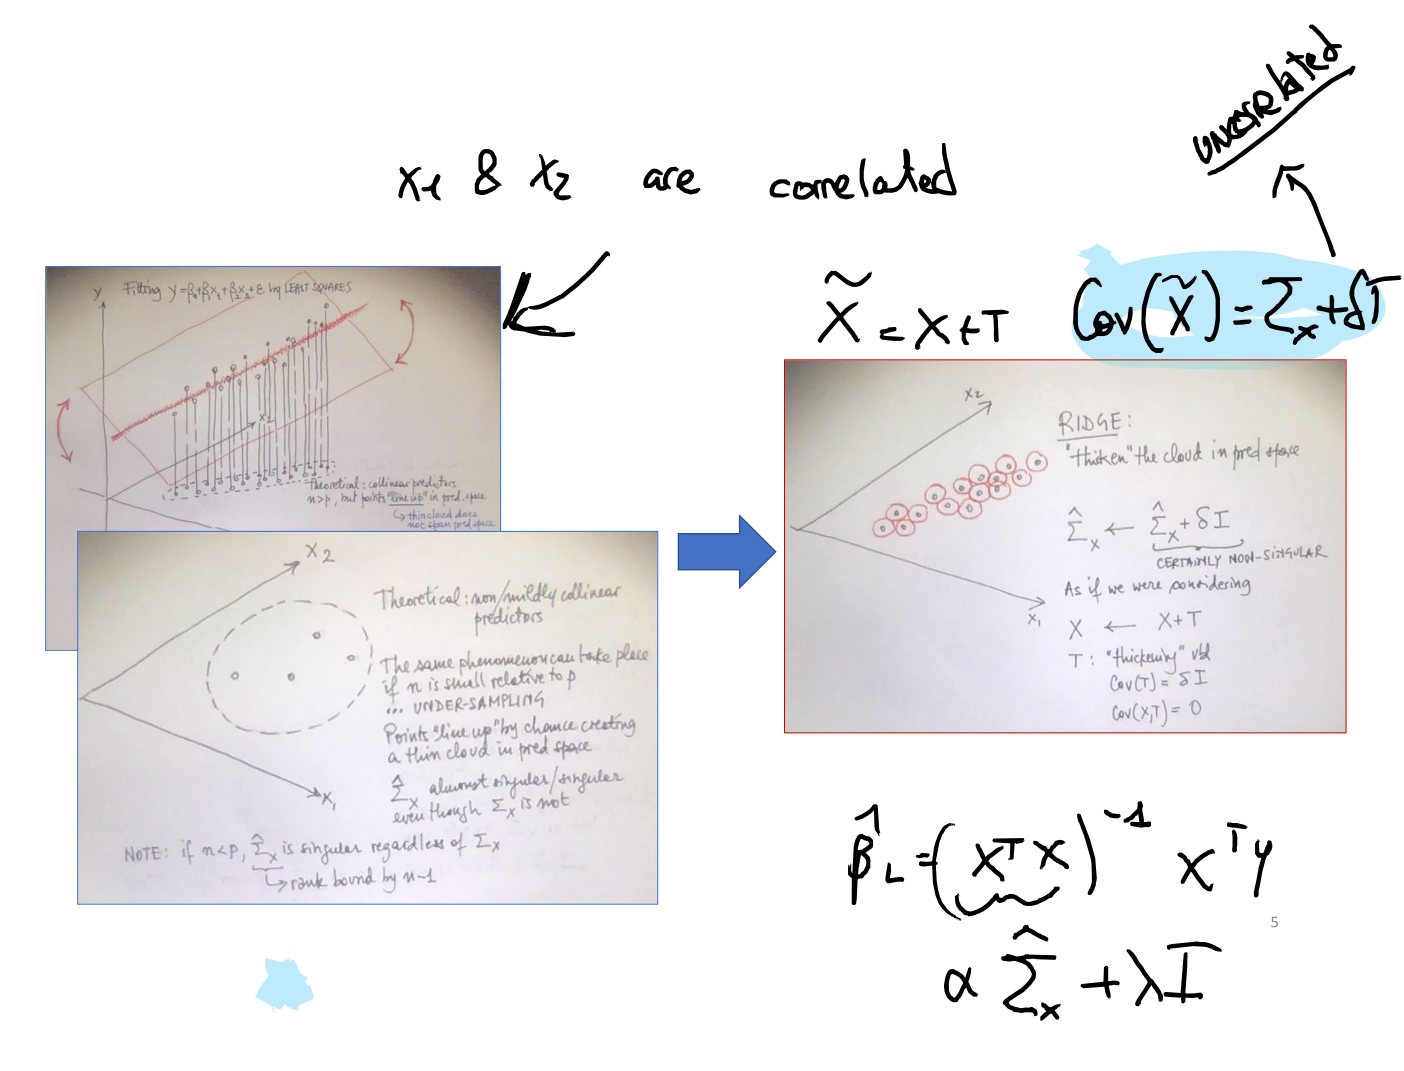 uncorrelated
x1 & x2 are correlated
X̃ = X+T
Cov(X̃) = Σx + δI
Y
Fitting Y=β0+β1X1+β2X2+ε by LEAST SQUARES
X2
Theoretical: collinear predictors
n>p, but points "line up" in pred. space
↳ thin cloud does
not span pred space
X2
Theoretical: non/mildly collinear
predictors
The same phenomenon can take place
if n is small relative to p
... UNDER-SAMPLING
Points "line up" by chance creating
a thin cloud in pred space
Σ̂x almost singular/singular
even though Σx is not
X1
NOTE: if n<p, Σ̂x is singular regardless of Σx
↳ rank bound by n-1
X2
RIDGE:
"thicken" the cloud in pred space
Σ̂x ← Σ̂x + δI
CERTAINLY NON-SINGULAR
As if we were considering
X1
X ← X+T
T: "thickening" vbl
Cov(T) = δI
Cov(X,T) = 0
β̂L = (XᵀX)⁻¹ XᵀY
5
α Σ̂x + λI